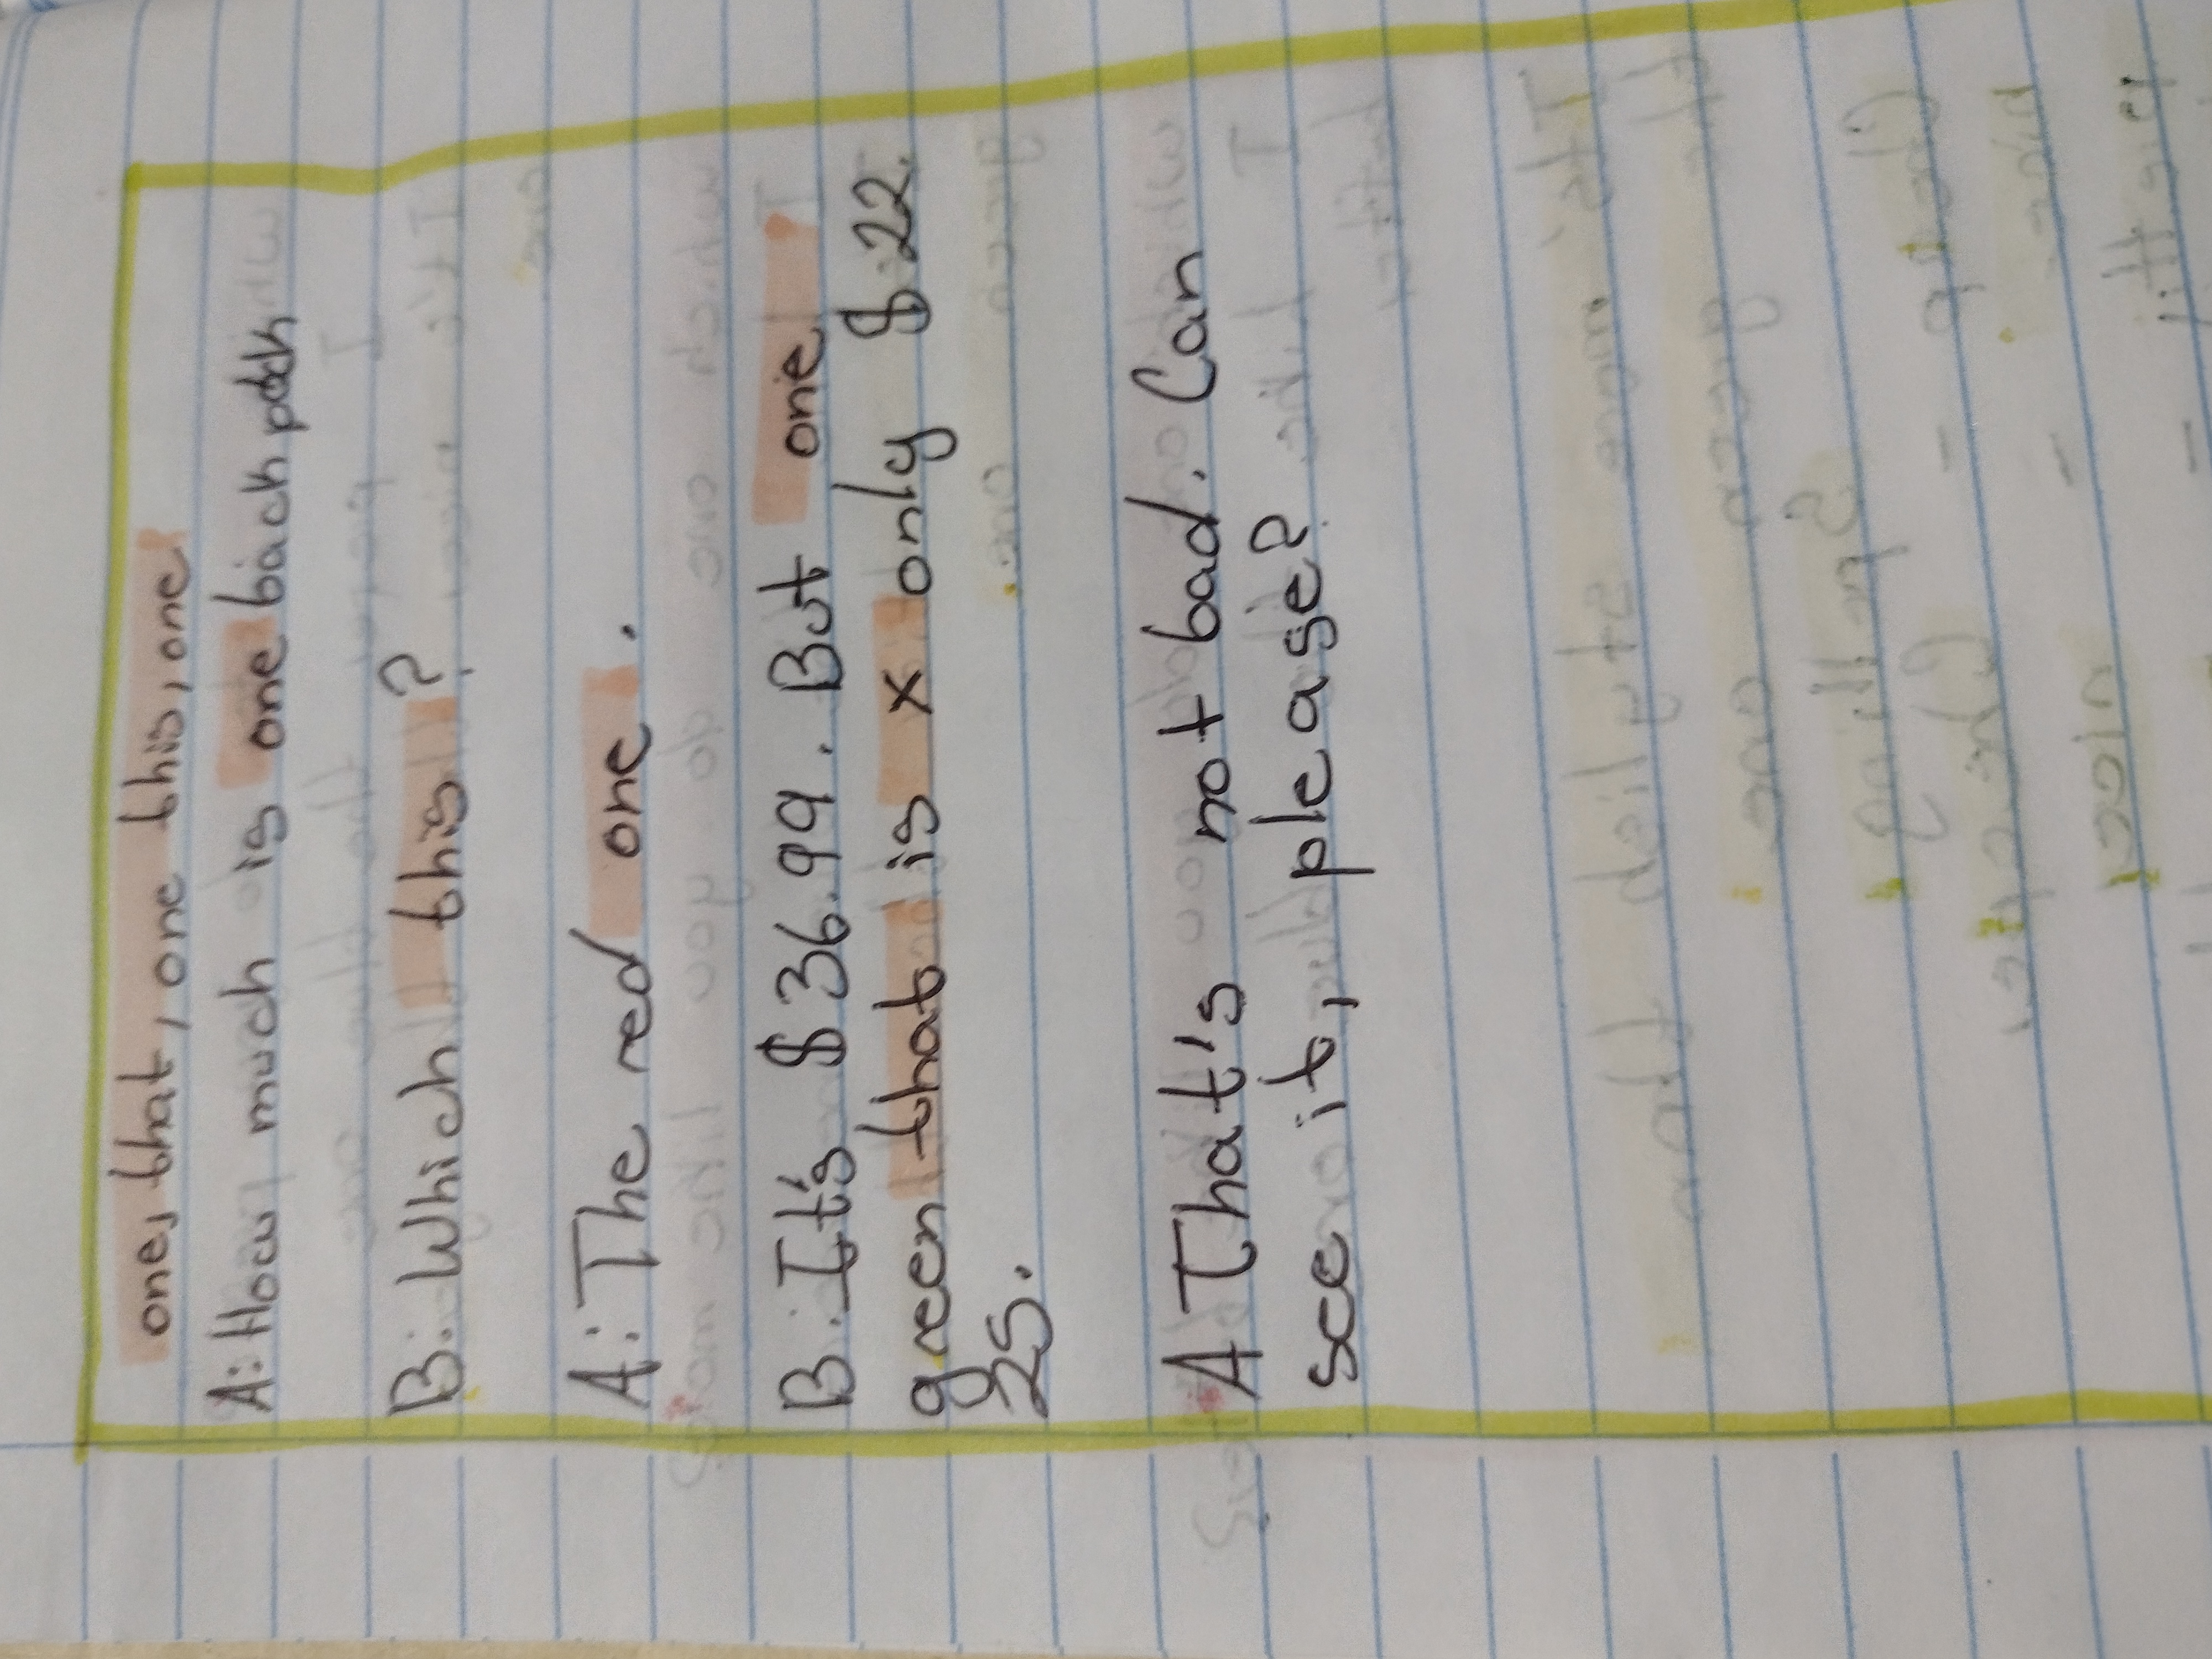 one, that, one this, one
A: How much is one back
B: Which this?
A: The red one.
B: It's $ 36.99. But one
green that is x only $.22.
25.
A That's not bad. Can
see it, please?